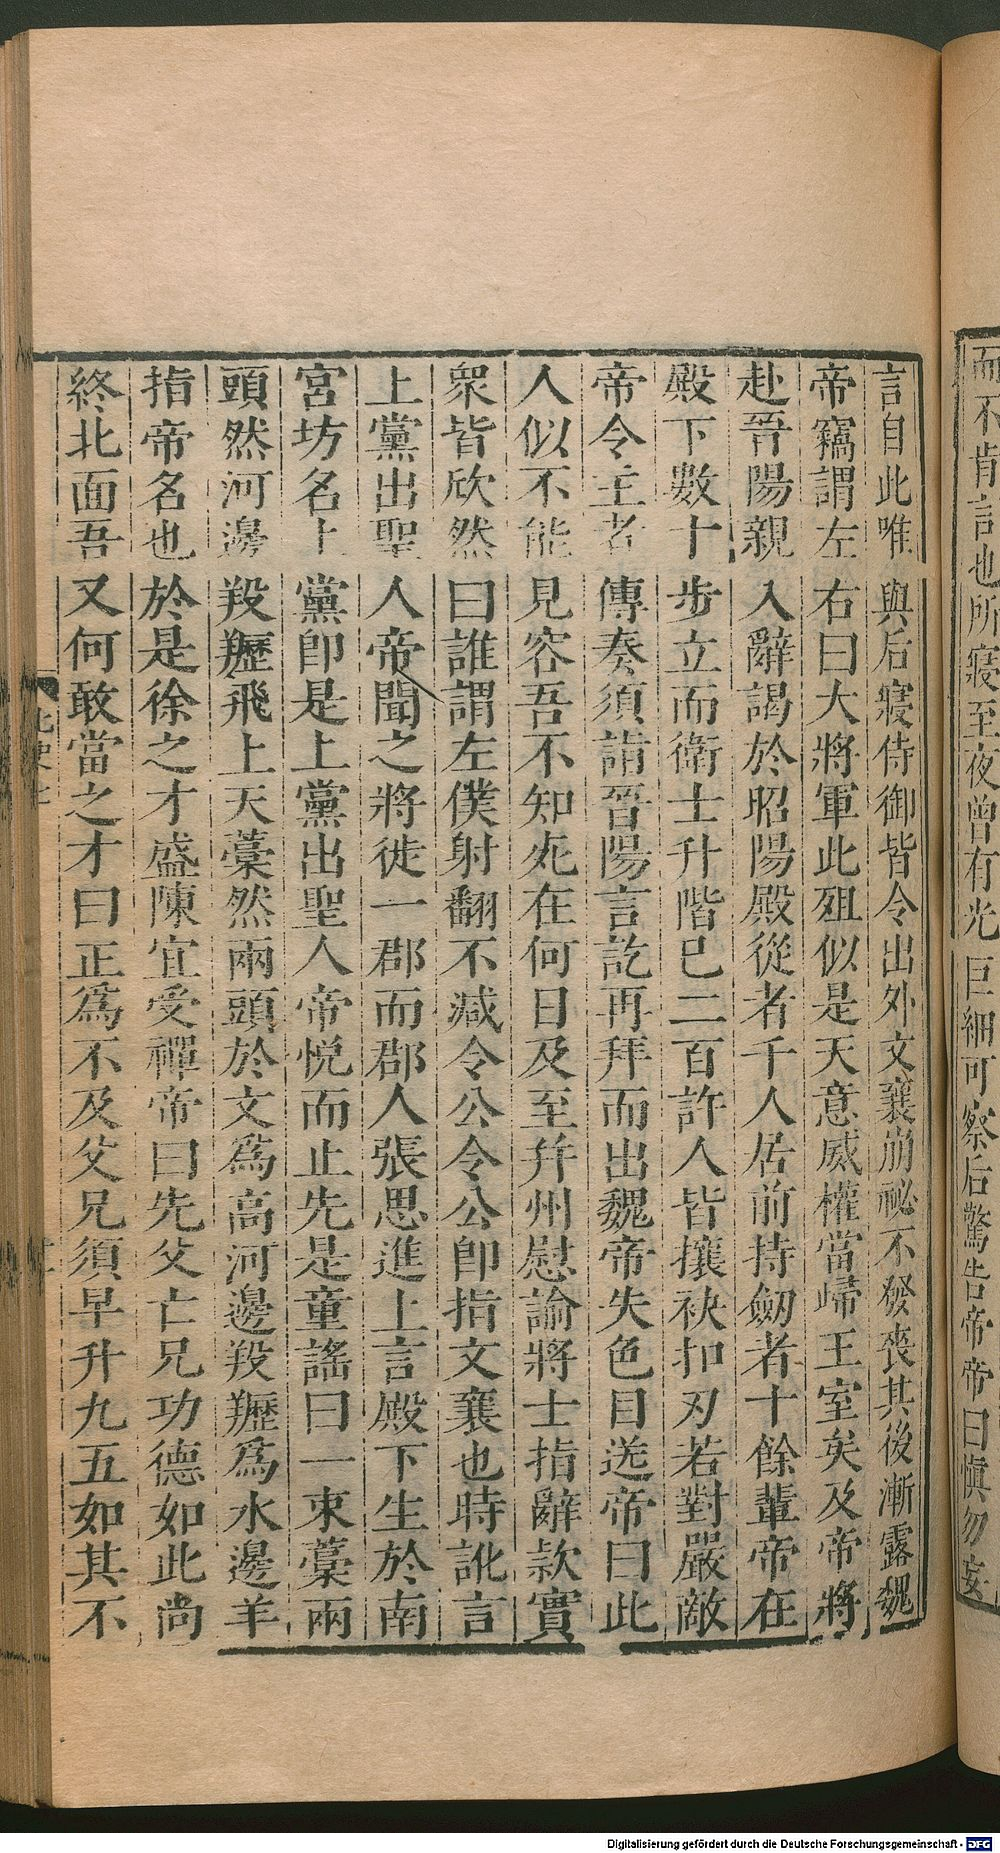 而不肯言也所寢至夜曾有光巨細可察后驚告帝帝曰慎勿妄
言自此唯與后寢侍御皆令出外文襄崩祕不發喪其後漸露魏
帝竊謂左右曰大將軍此殂似是天意威權當歸王室矣及帝將
赴晉陽親入辭謁於昭陽殿從者千人居前持劒者十餘輩帝在
殿下數十步立而衛士升階已二百許人皆攘袂扣刃若對嚴敵
帝令主者傳奏須詣晉陽言訖再拜而出魏帝失色目送帝曰此
人似不能見容吾不知死在何日及至幷州慰諭將士指辭款實
衆皆欣然曰誰謂左僕射翻不減令公令公卽指文襄也時訛言
上黨出聖人帝聞之將徙一郡而郡人張思進上言殿下生於南
宮坊名上黨卽是上黨出聖人帝悅而止先是童謠曰一束藁兩
頭然河邊羖䍽飛上天藁然兩頭於文爲高河邊羖䍽爲水邊羊
指帝名也於是徐之才盛陳宜受禪帝曰先父亡兄功德如此尚
終北面吾又何敢當之才曰正爲不及父兄須早升九五如其不
北史七
Digitalisierung gefördert durch die Deutsche Forschungsgemeinschaft - DFG